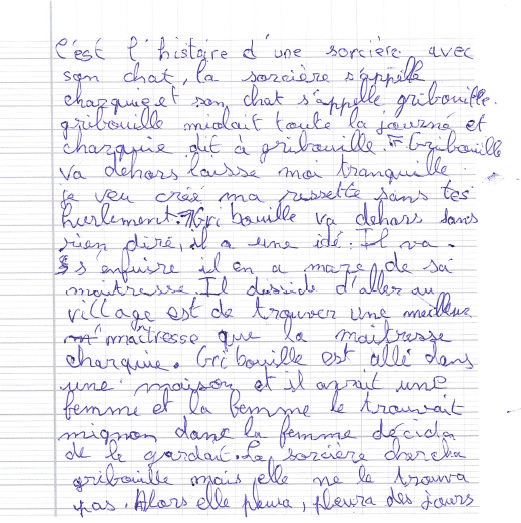 C'est l'histoire d'une sorcière avec
son chat, la sorcière s'appelle
charquie et son chat s'appelle gribouille.
gribouille miolait toute la journé et
charquie dit à gribouille. Gribouille
va dehors laisse moi tranquille
je veu créé ma ressette sans tes
hurlement. Gribouille va dehors sans
rien dire, il a une idé. Il va
s'enfuire il en a mare de sa
maitresse. Il desside d'aller au
village est de trouver une meilleure
maîtresse que la maîtresse
charquie. Gribouille est allé dans
une maison et il avait une
femme et la femme le trouvait
mignon donc la femme décida
de le gardait. La sorcière chercha
gribouille mais elle ne le trouva
pas. Alors elle pleura, pleura des jours